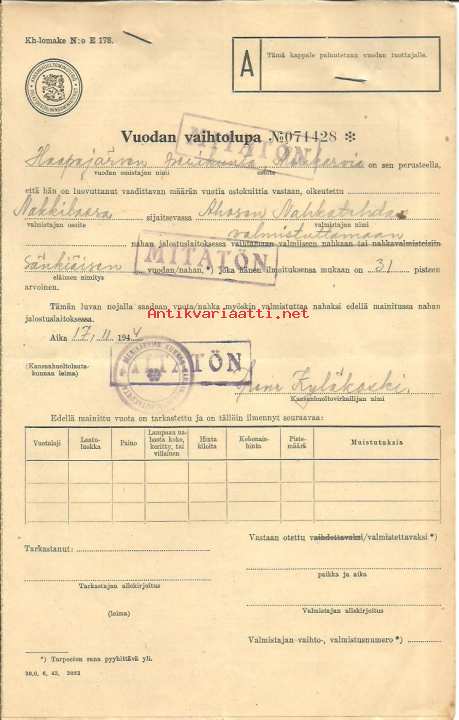 Kh-lomake N:o E 178.
A
Tämä kappale palautetaan vuodan tuottajalle.
Vuodan vaihtolupa №071428 ✻
MITÄTÖN
Haapajärven on sen perusteella,
vuodan omistajan nimi osoite
että hän on luovuttanut vaadittavan määrän vuotia ostokuittia vastaan, oikeutettu
Nakkilassa sijaitsevassa Ahosen Nahkatehdas
valmistajan osoite valmistajan nimi
valmistuttamaan
nahan jalostuslaitoksessa vaihtamaan valmiiseen nahkaan tai nahkavalmisteisiin
MITÄTÖN
vuodan/nahan, *) joka hänen ilmoituksensa mukaan on 31 pisteen
eläimen nimitys
arvoinen.
Tämän luvan nojalla saadaan vuota/nahka myöskin valmistuttaa nahaksi edellä mainitussa nahan
jalostuslaitoksessa.
Antikvariaatti.net
Aika 17/11 1944
MITÄTÖN
(Kansanhuoltolauta-
kunnan leima)
Kyläkoski
Kansanhuoltovirkailijan nimi
Edellä mainittu vuota on tarkastettu ja on tällöin ilmennyt seuraavaa:
Vuotalaji Laatu-luokka Paino Lampaan nahasta koko, keritty, tai villainen Hinta kilolta Kokonais-hinta Piste-määrä Muistutuksia
Vastaan otettu vaihdettavaksi/valmistettavaksi *)
Tarkastanut:
paikka ja aika
Tarkastajan allekirjoitus
(leima)
Valmistajan allekirjoitus
Valmistajan vaihto-, valmistusnumero *)
*) Tarpeeton sana pyyhittävä yli.